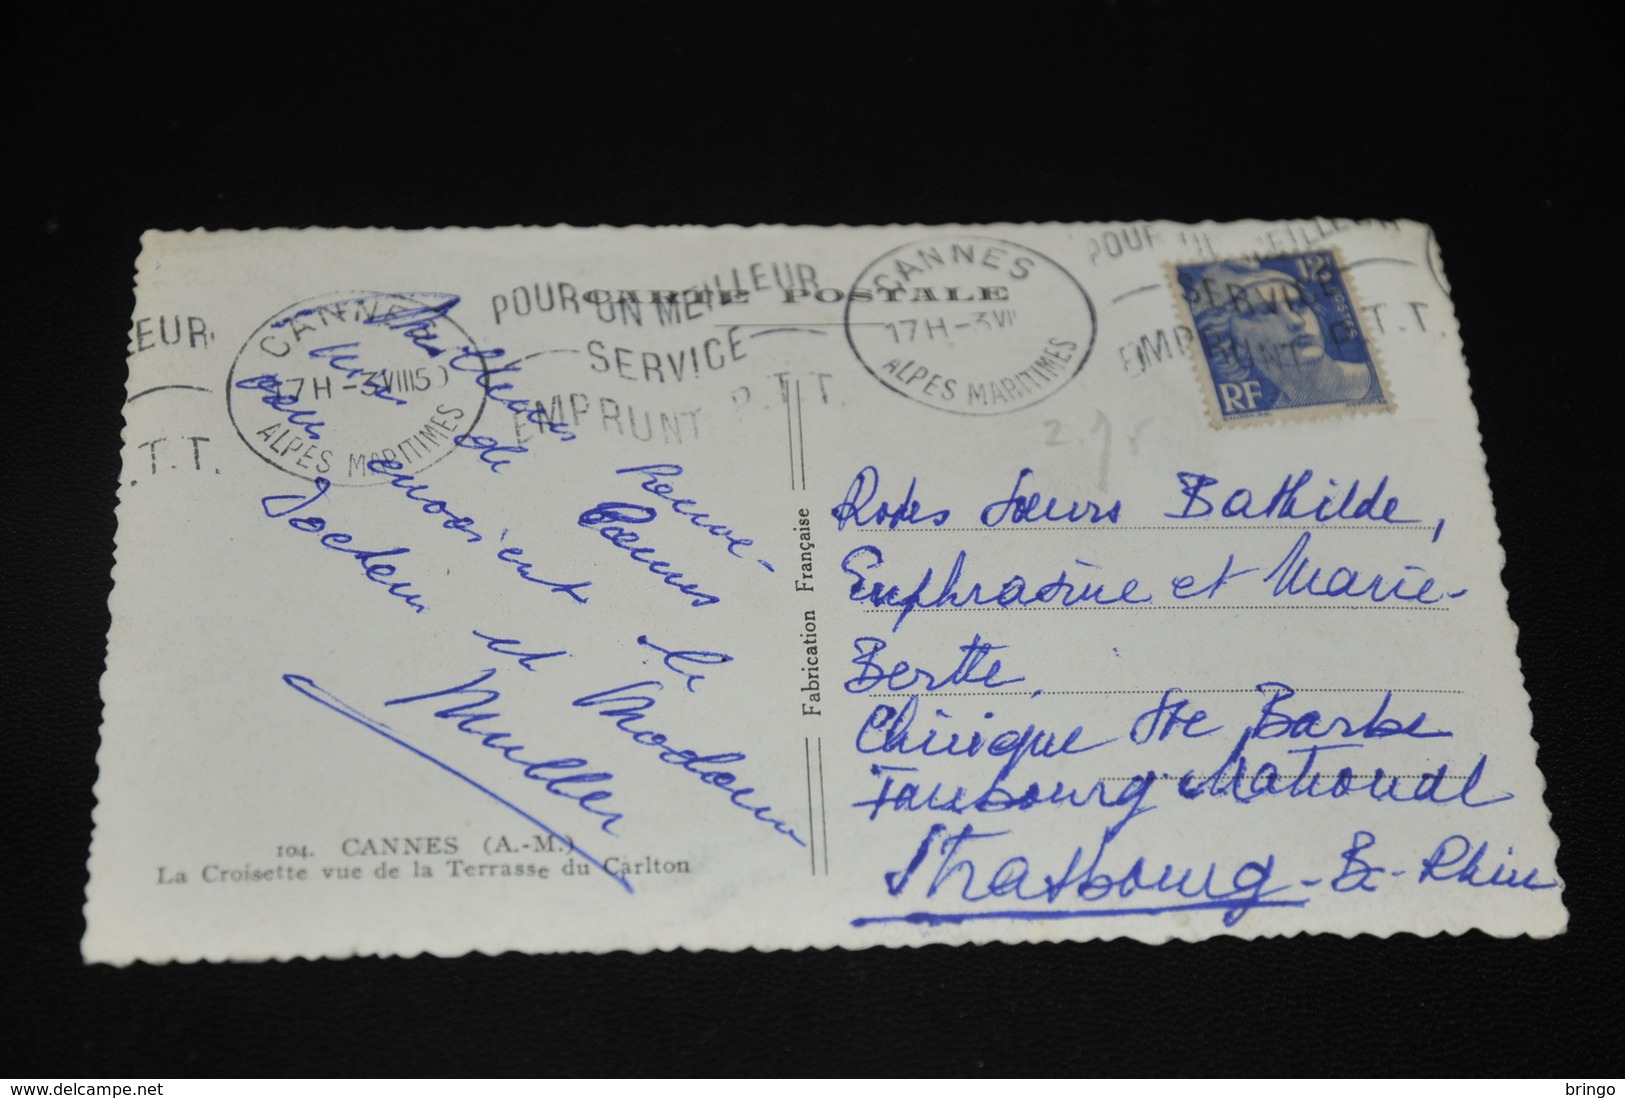 CARTE POSTALE
POUR UN MEILLEUR
SERVICE
EMPRUNT P.T.T.
CANNES
17H-3VIII50
ALPES MARITIMES
EUR
T.T.
CANNES
17H-3VII
ALPES MARITIMES
POUR UN MEILLEUR
SERVICE
EMPRUNT P.T.T.
12F
RF
Meilleurs
de
Cannes le
vous envoient
Docteur et Madame
Muller
Fabrication Française
Rdes Sœurs Bathilde,
Euphrasine et Marie-
Berthe
Clinique Ste Barbe
Faubourg National
Strasbourg - B-Rhin
104. CANNES (A.-M.)
La Croisette vue de la Terrasse du Carlton
delcampe.net
bringo